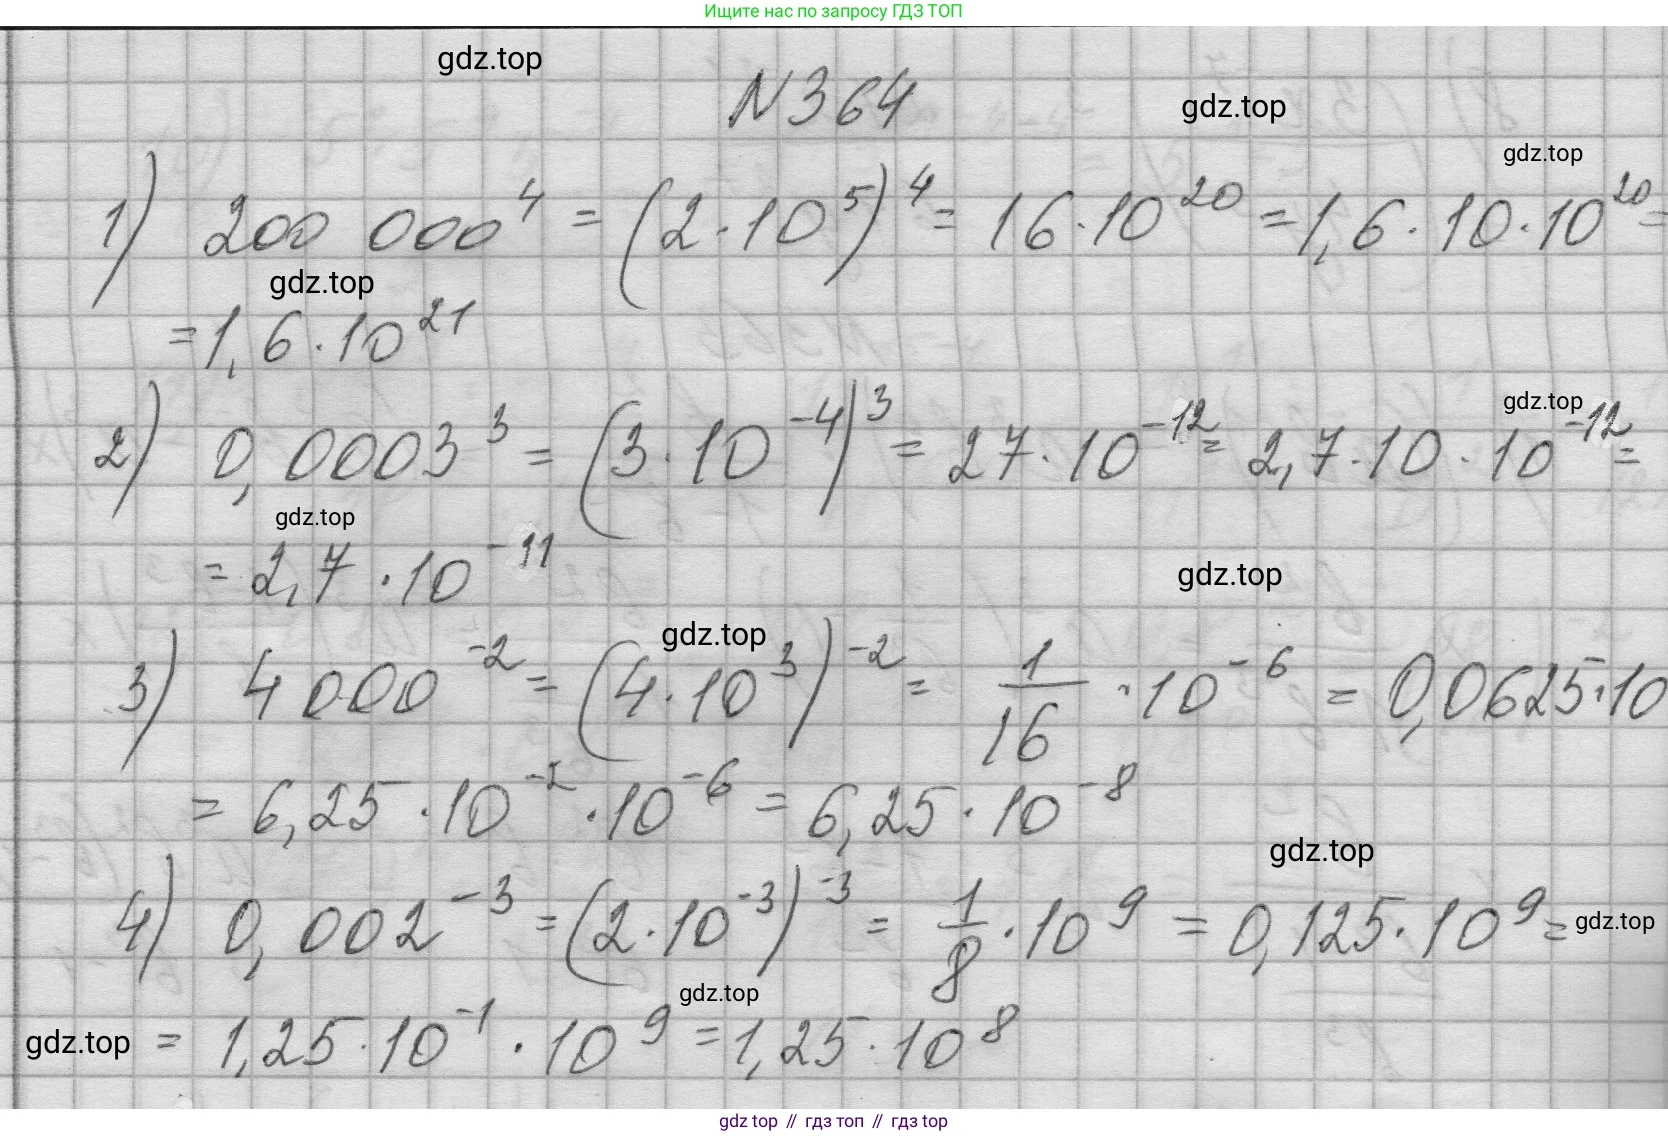 Ищите нас по запросу ГДЗ ТОП
gdz.top
N364
gdz.top
gdz.top
1) 200 000⁴ = (2·10⁵)⁴ = 16·10²⁰ = 1,6·10·10²⁰ =
gdz.top
= 1,6·10²¹
gdz.top
2) 0,0003³ = (3·10⁻⁴)³ = 27·10⁻¹² = 2,7·10·10⁻¹² =
gdz.top
= 2,7·10⁻¹¹
gdz.top
gdz.top
3) 4000⁻² = (4·10³)⁻² = 1/16 ·10⁻⁶ = 0,0625·10
= 6,25·10⁻²·10⁻⁶ = 6,25·10⁻⁸
gdz.top
4) 0,002⁻³ = (2·10⁻³)⁻³ = 1/8 ·10⁹ = 0,125·10⁹ =
gdz.top
gdz.top
gdz.top
= 1,25·10⁻¹·10⁹ = 1,25·10⁸
gdz top // гдз топ // гдз top